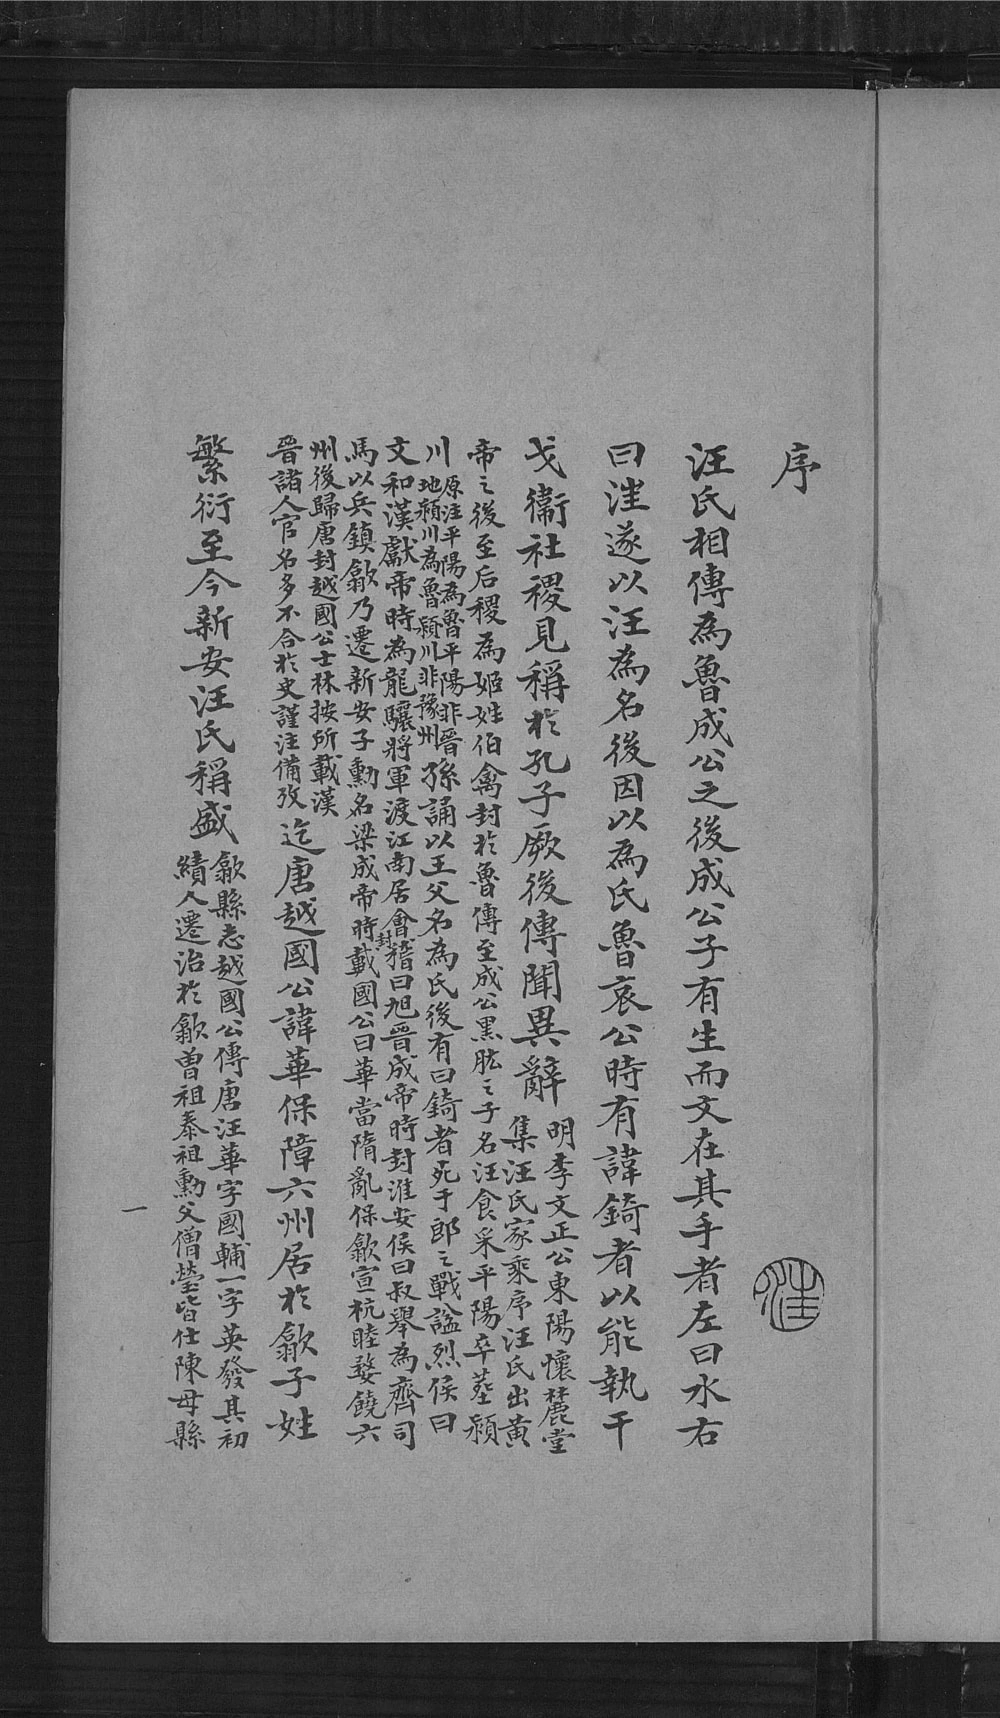 序
汪
汪氏相傳為魯成公之後成公子有生而文在其手者左曰水右
曰遂以汪為名後因以為氏魯哀公時有諱錡者以能執干
戈衞社稷見稱於孔子厥後傳聞異辭
明李文正公東陽懷麓堂
集汪氏家乘序汪氏出黃
帝之後至后稷為姬姓伯禽封於魯傳至成公黑肱之子名汪食采平陽卒塟潁
川
原注平陽為魯平陽非晉
地潁川為魯潁川非豫州
孫誦以王父名為氏後有曰錡者死于郎之戰諡烈侯曰
文和漢獻帝時為龍驤將軍渡江南居會稽曰旭晉成帝時封淮安侯曰叔舉為齊司
馬以兵鎮歙乃遷新安子勳名梁成帝時封戴國公曰華當隋亂保歙宣杭睦婺饒六
州後歸唐封越國公士林按所載漢
晉諸人官名多不合於史謹注備攷
迄唐越國公諱華保障六州居於歙子姓
繁衍至今新安汪氏稱盛
歙縣志越國公傳唐汪華字國輔一字英發其初
績人遷治於歙曾祖泰祖勳父僧瑩皆仕陳母縣
一